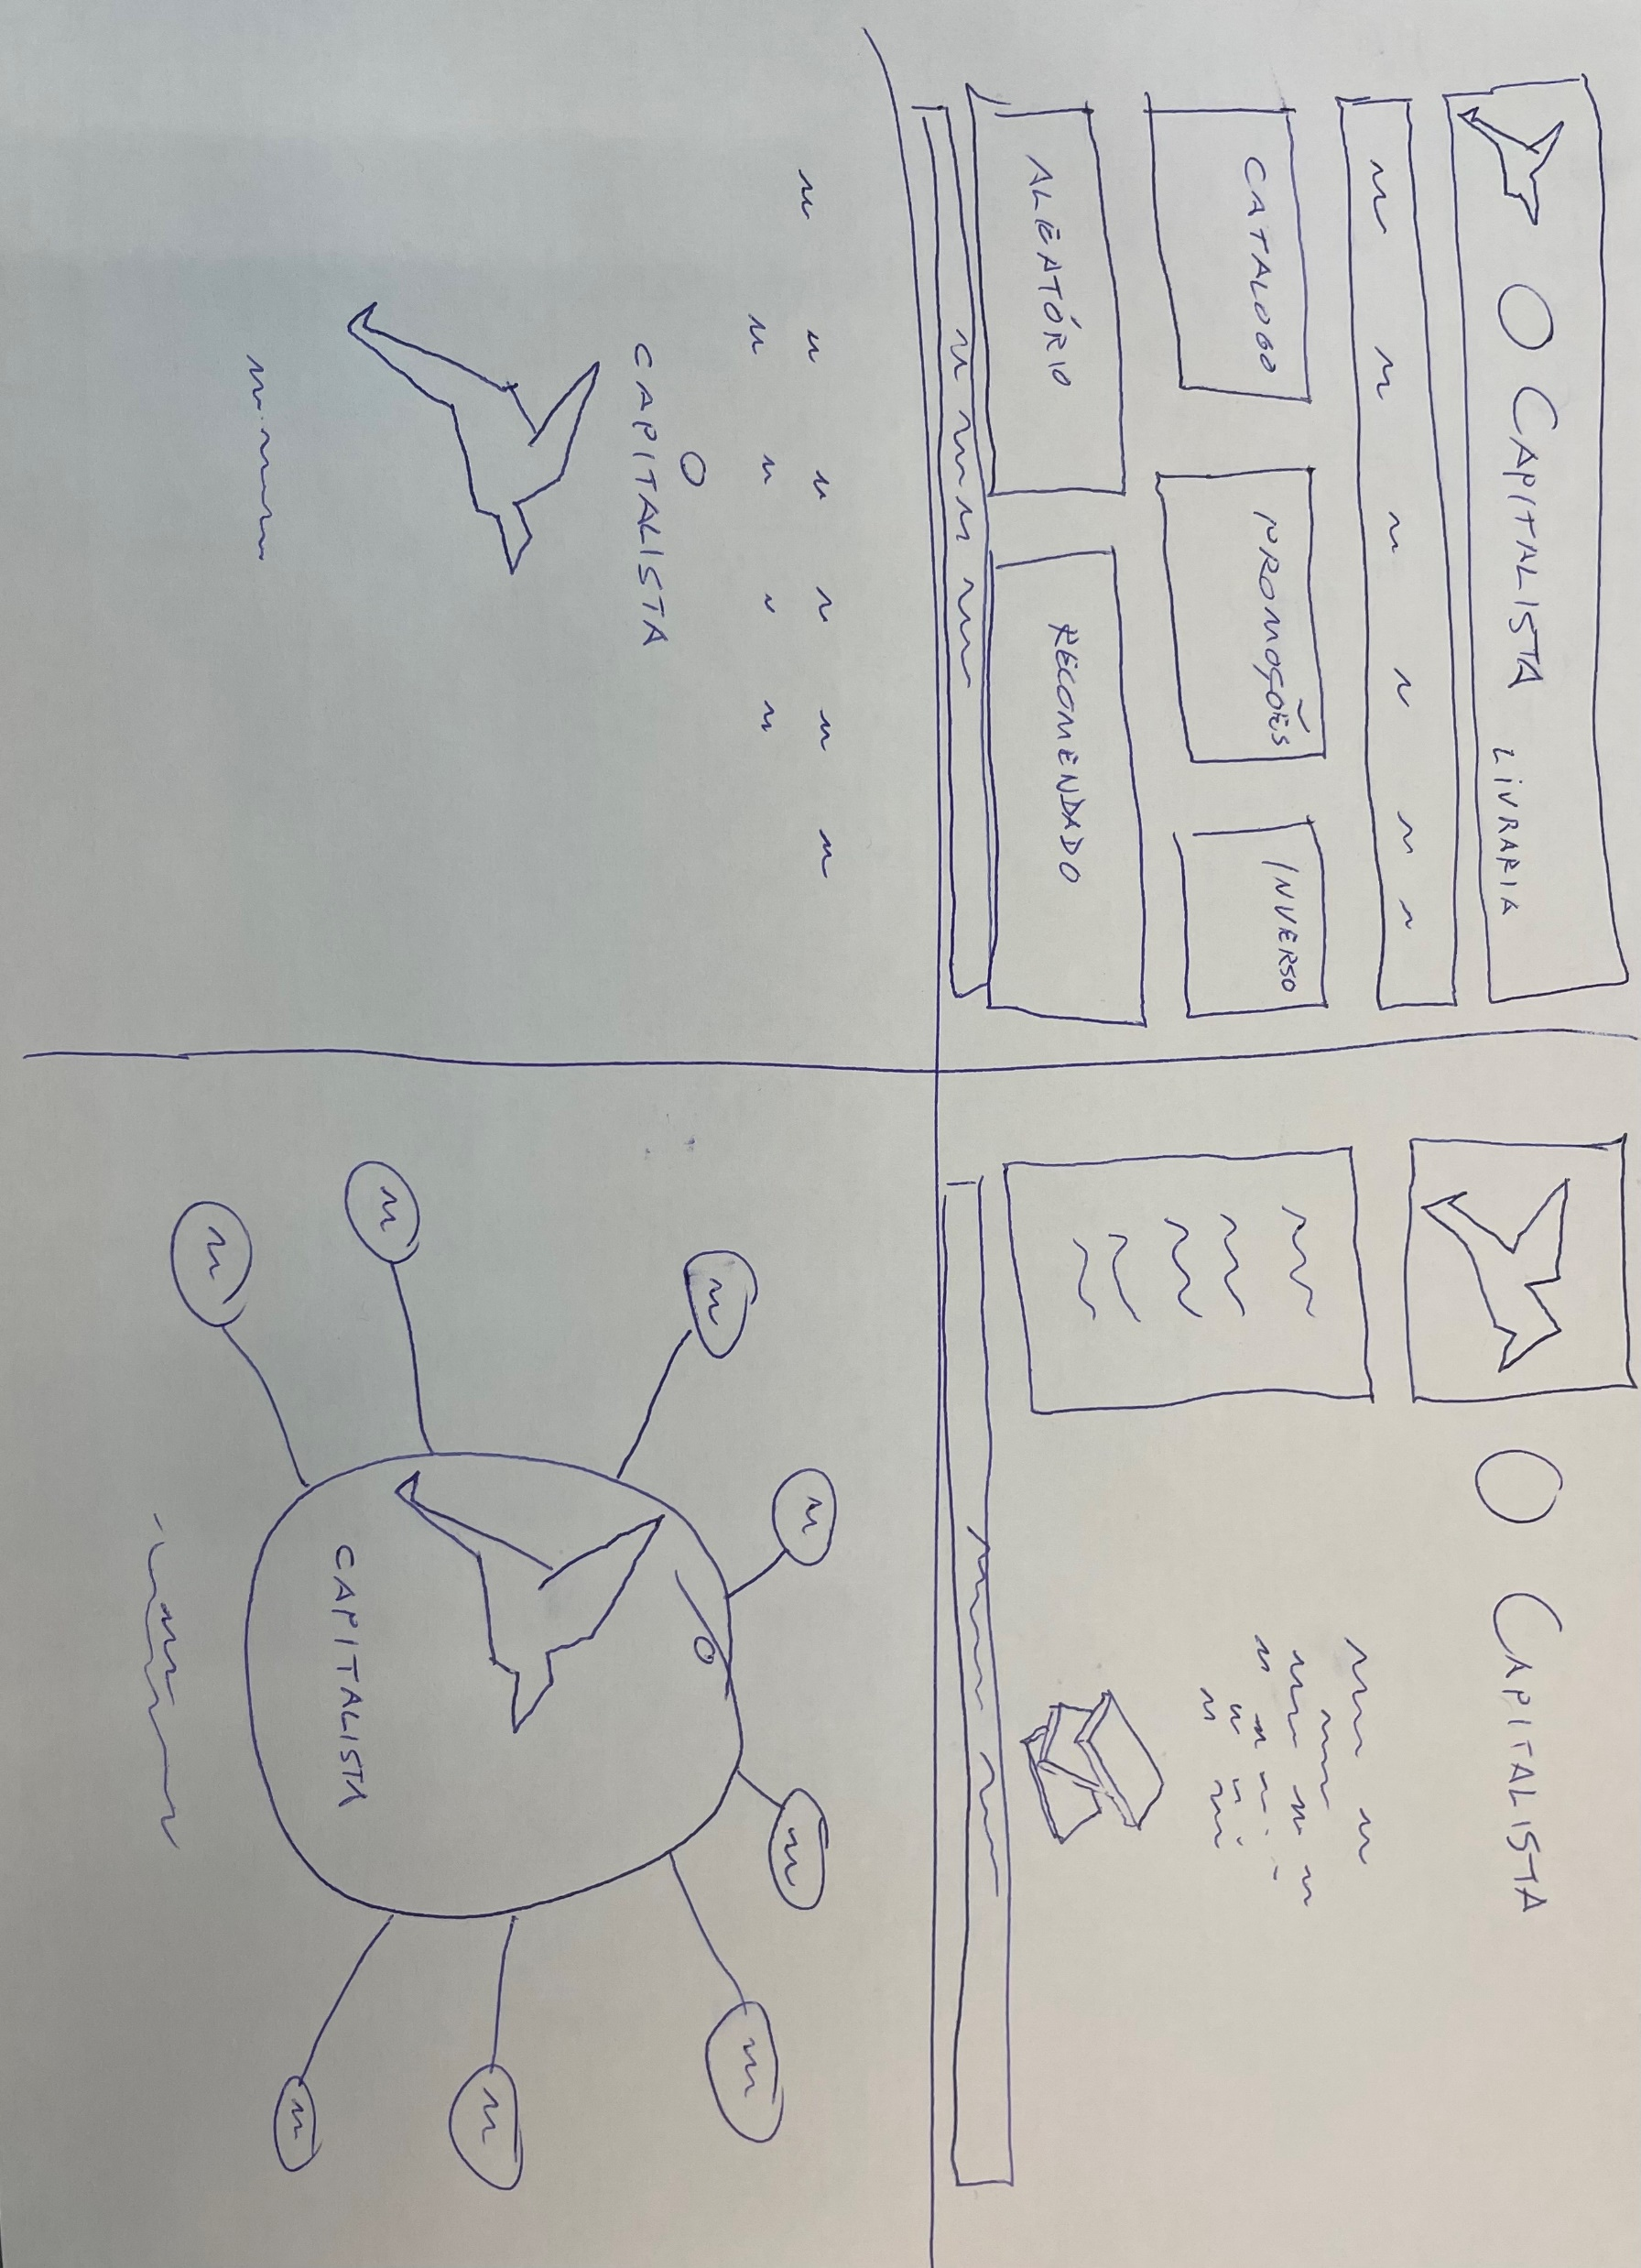 O CAPITALISTA LIVRARIA
CATALOGO PROMOÇÕES INVERSO
ALEATÓRIO RECOMENDADO
O CAPITALISTA
O
CAPITALISTA
O
CAPITALISTA